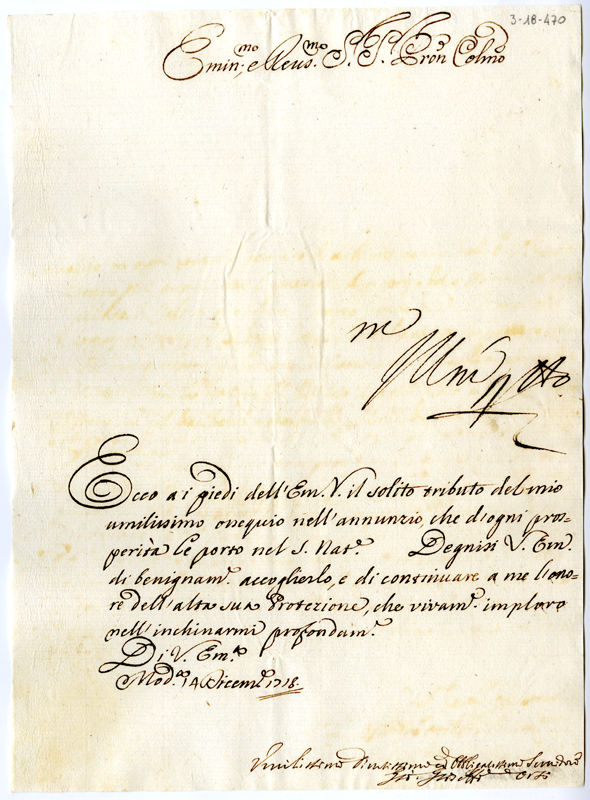 3-18-470
Emin.mo e Reus.mo S.r S.r Pron Colmo
m
Ecco a i piedi dell'Em. V. il solito tributo del mio
umilissimo ossequio nell'annunzio, che d'ogni pros=
perità Le porto nel S. Nat.e Degnisi V. Em.
di benignam.te accoglierlo, e di continuare a me l'ono=
re dell'alta sua Protezione, che vivam.te imploro
nell'inchinarmi profondam.te
Di V. Em.a
Mod.a 14 Dicemb. 1718.
Umilissimo Divotissimo ed Obbligatissimo Servidore